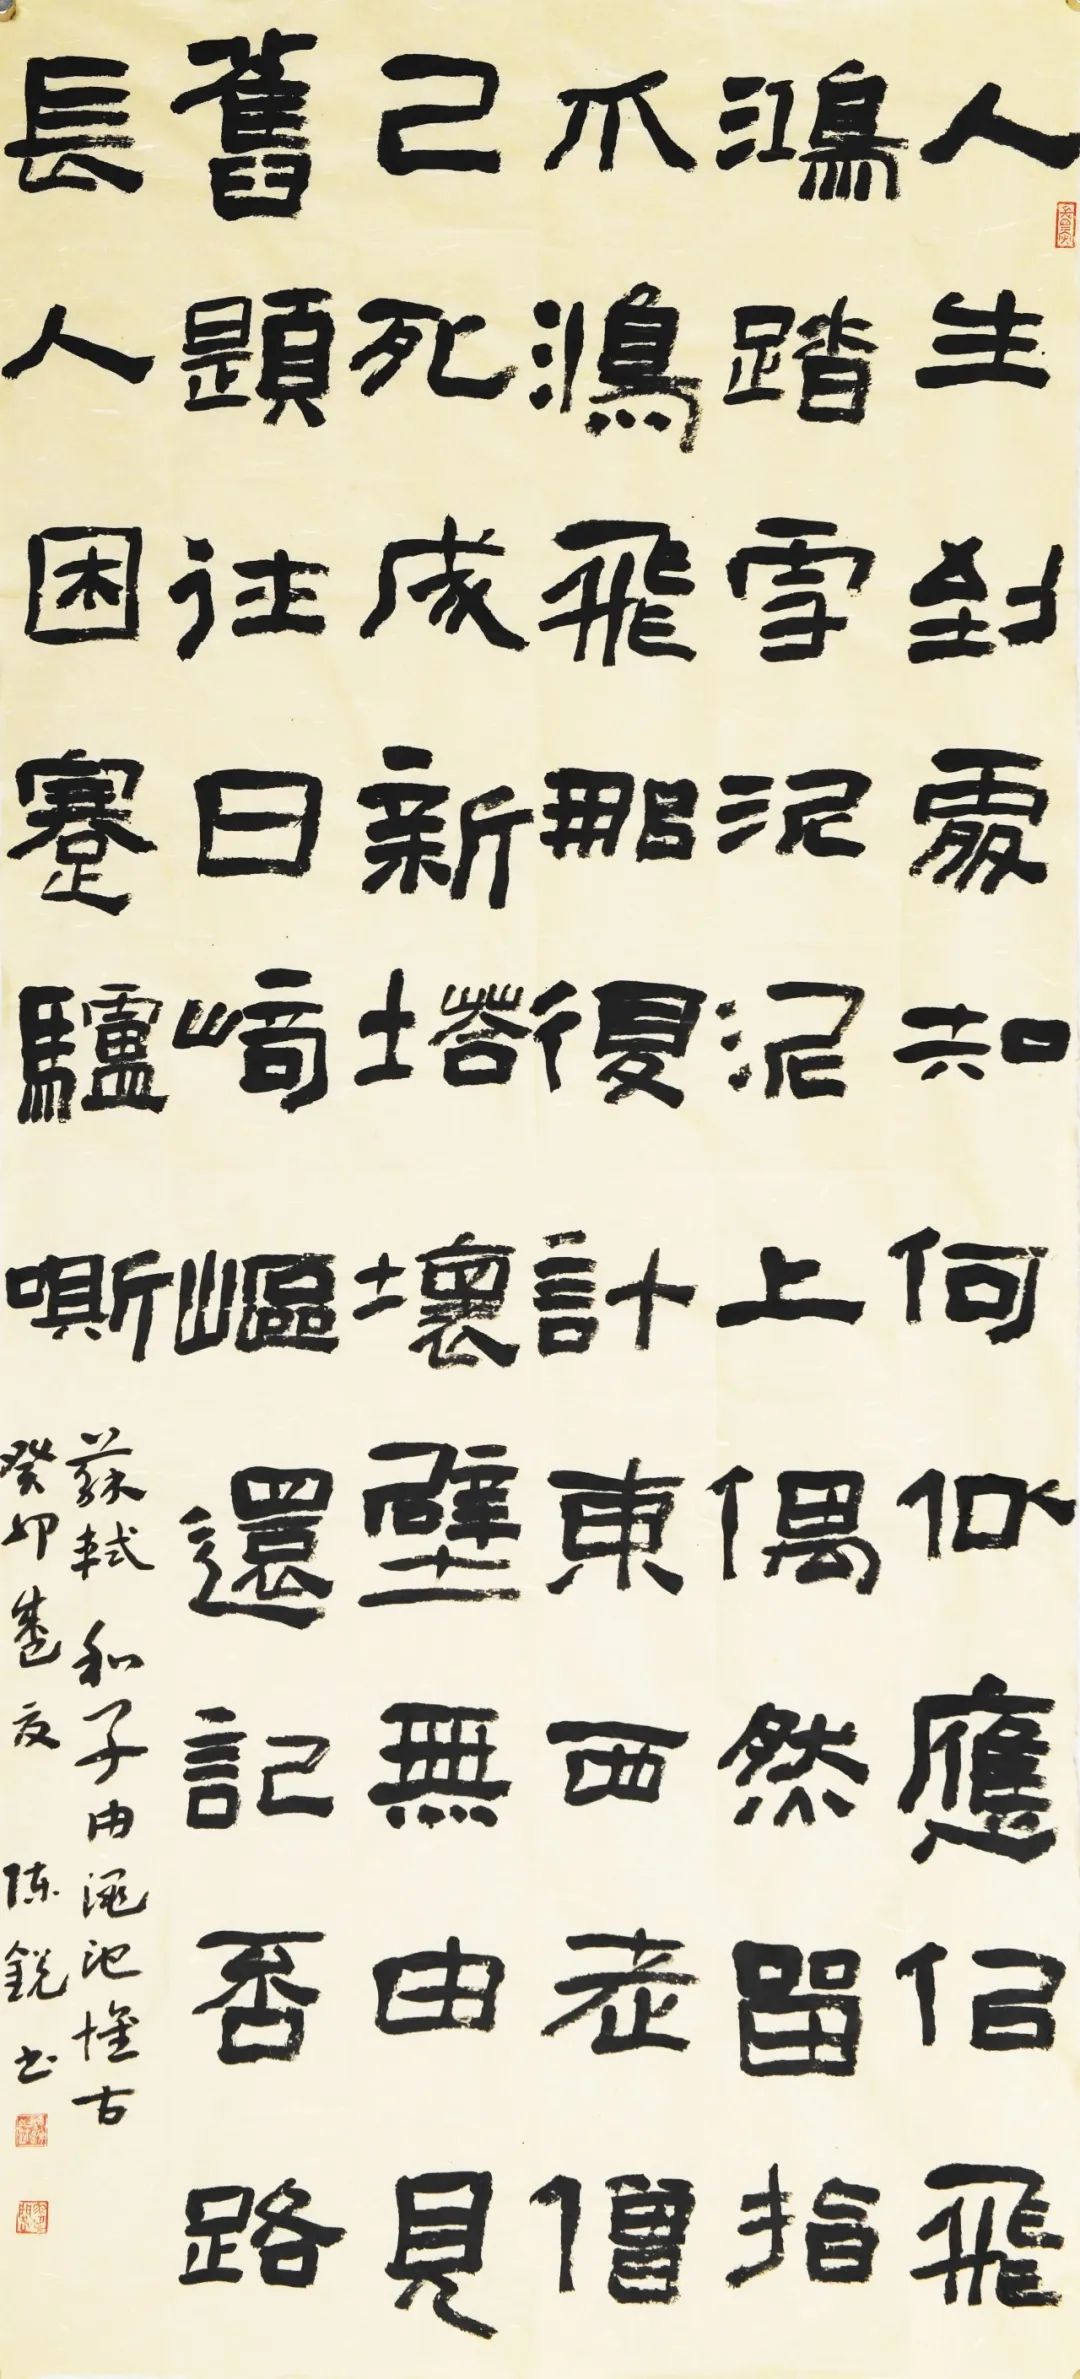 人生到處知何似應佀飛
鴻踏雪泥泥上偶然留指
爪鴻飛那復計東西老僧
已死成新塔壞壁無由見
舊題往日崎嶇還記否路
長人困蹇驢嘶
蘇軾和子由澠池懷古
癸卯 陳銳书